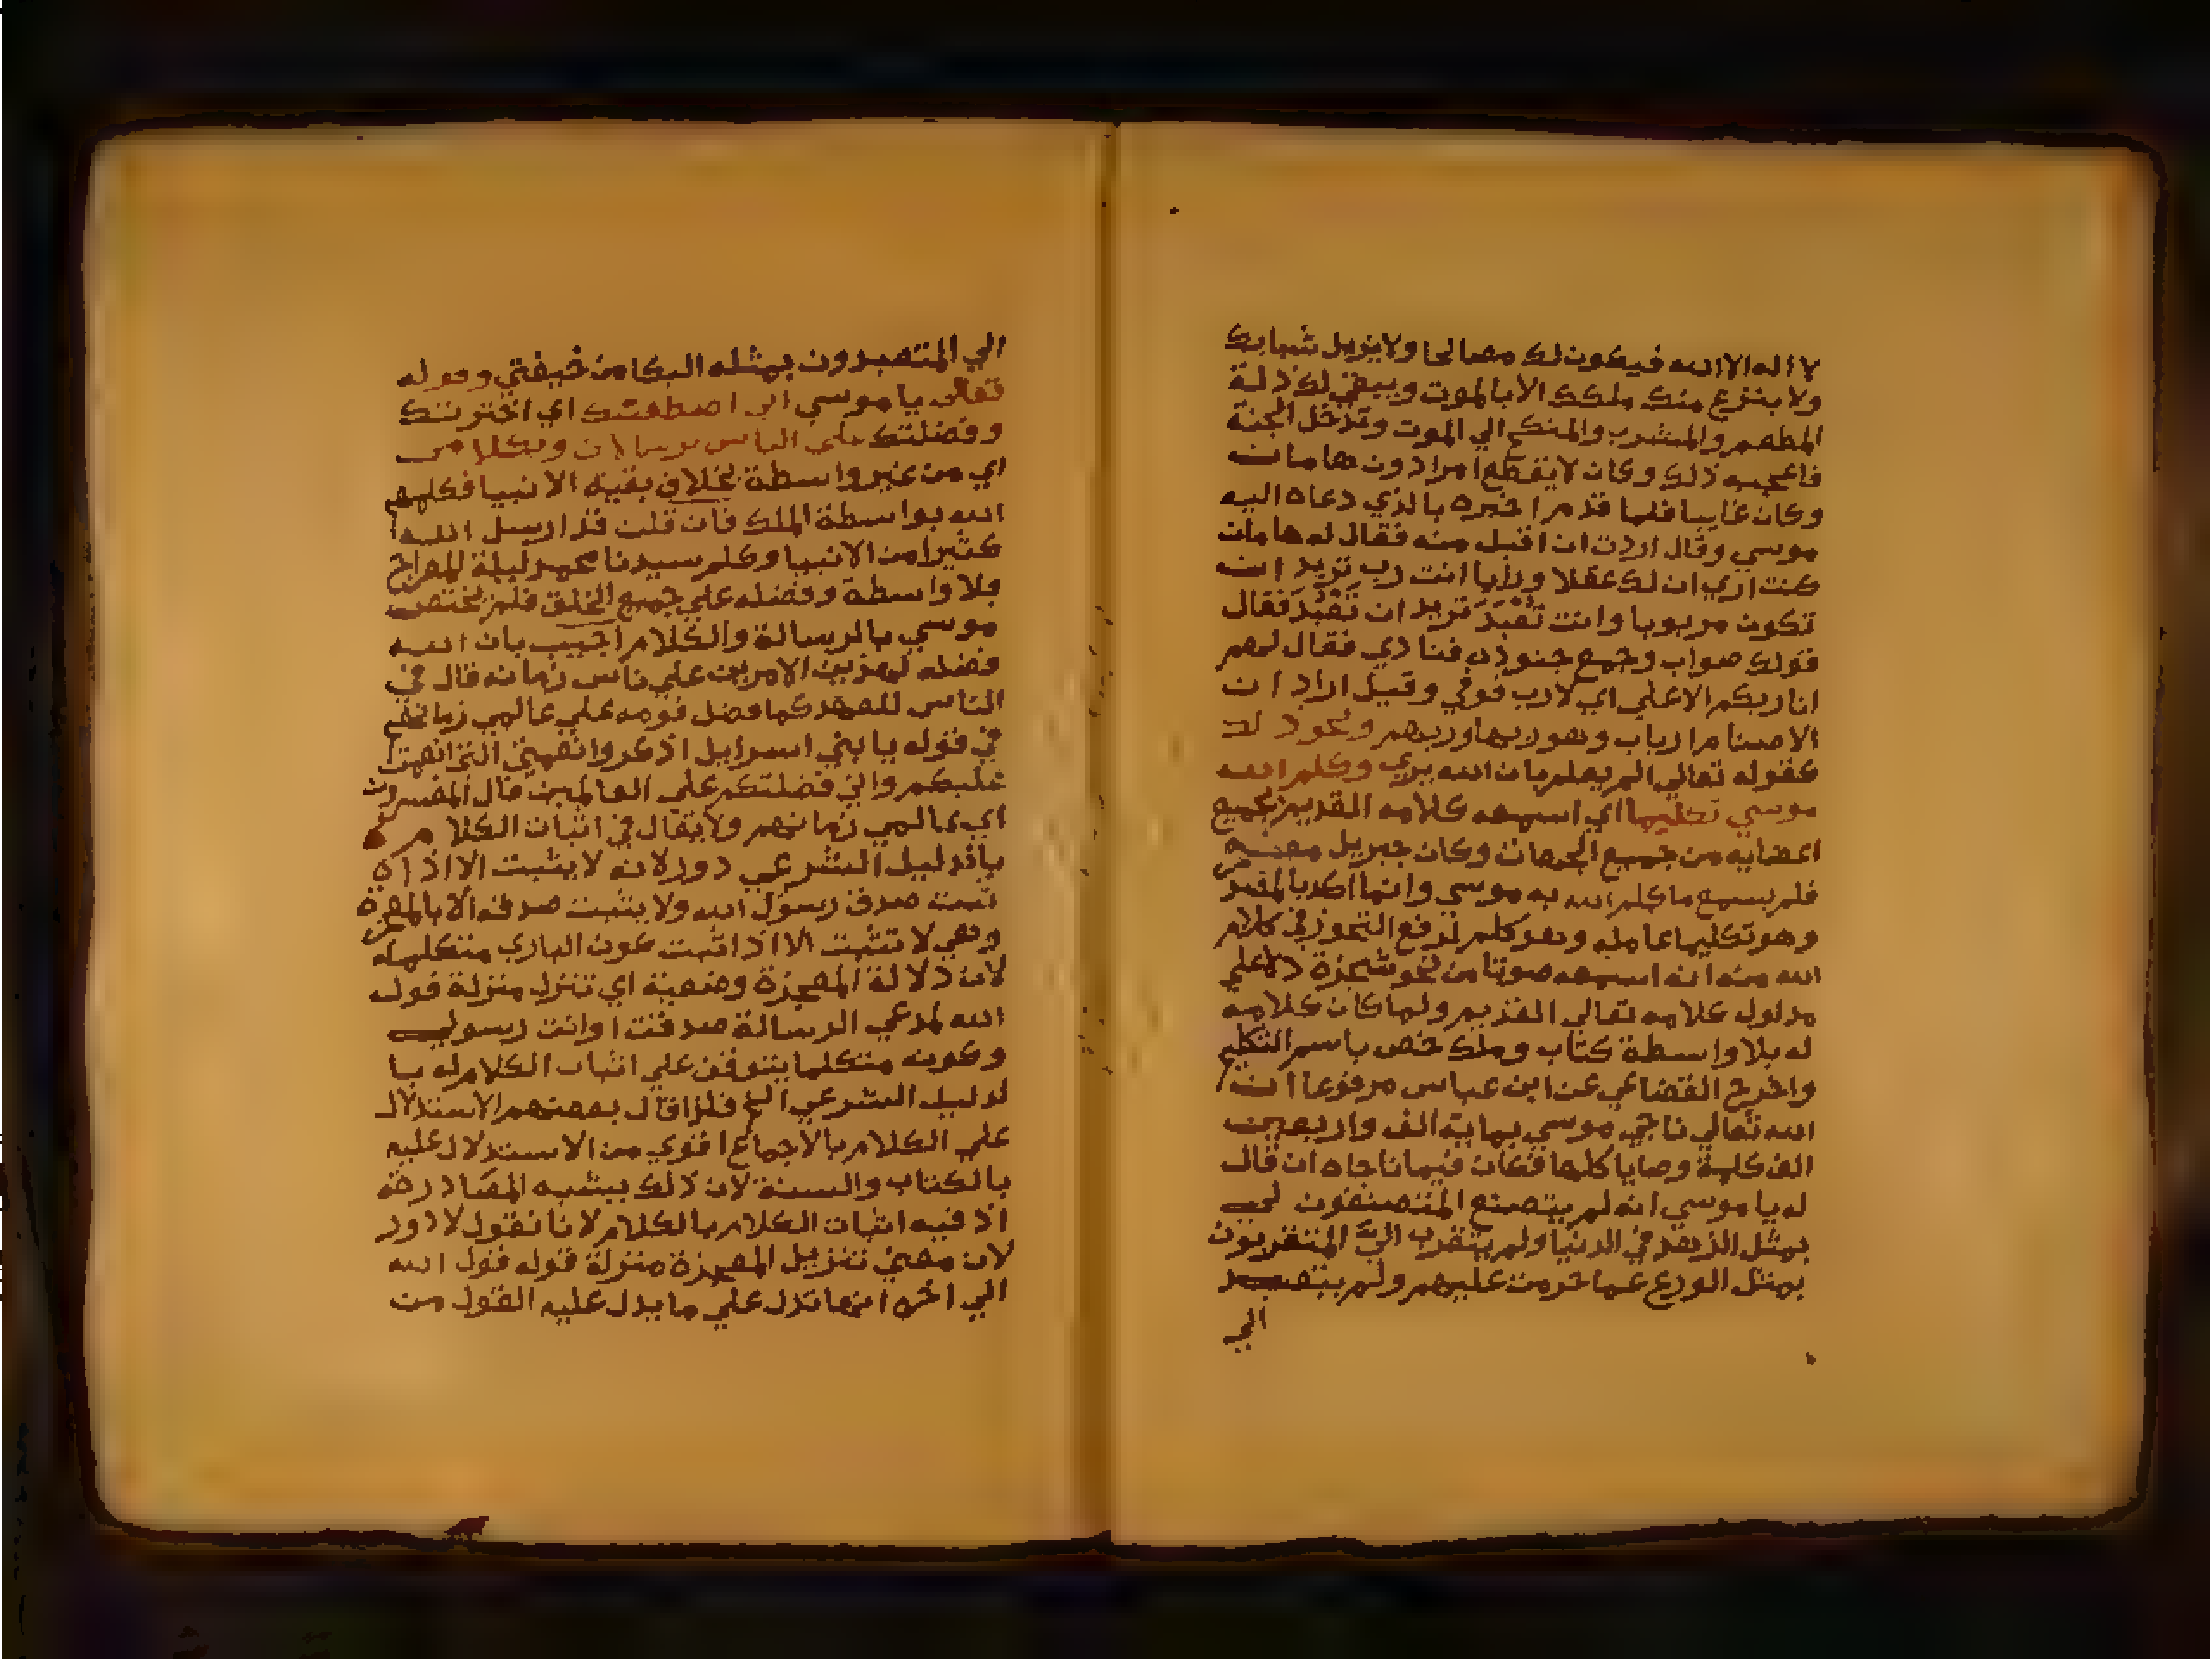 لا اله الا الله فيكون لك مصالحا ولا يزيل شبابك
ولا ينزع منك ملكك الا بالموت ويبقي لك لذة
المطعم والمشرب والمنكح الي الموت وتدخل الجنة
فاعجبه ذلك وكان لا يقطع امرا دون هامان
وكان غايبا فلما قدم اخبره بالذي دعاه اليه
موسي وقال اردت ان اقبل منه فقال له هامان
كنت اري ان لك عقلا ورايا انت رب تريد ان
تكون مربوبا وانت تعبد تريد ان تعبد فقال
قولك صواب وجمع جنوده فنادي فقال لهم
انا ربكم الاعلي اي لا رب فوقي وقيل اراد ان
الاصنام ارباب وهو ربها وربهم ونحو ذلك
كقوله تعالي الم يعلم بان الله يري وكلم الله
موسي تكليما اي اسمعه كلامه القديم بجميع
اعضايه من جميع الجهات وكان جبريل معه
فلم يسمع ما كلم الله به موسي وانما اكد بالمصدر
وهو تكليما عامله وهو كلم لدفع التجوز في كلام
الله من انه اسمعه صوتا من نحو شجرة دالا علي
مدلول كلامه تعالي القديم ولما كان كلامه
له بلا واسطة كتاب وملك خص باسم الكليم
واخرج القضاعي عن ابن عباس مرفوعا ان
الله تعالي ناجي موسي بماية الف واربعين
الف كلمة وصايا كلها فكان فيما ناجاه ان قال
له يا موسي انه لم يتصنع المتصنعون لي
بمثل الزهد في الدنيا ولم يتقرب الي المتقربون
بمثل الورع عما حرمت عليهم ولم يتعبد
الي
الي المتعبدون بمثله البكا من خيفتي وقوله
تعالي يا موسي اني اصطفيتك اي اخترتك
وفضلتك علي الناس برسالاتي وبكلامي
اي من غير واسطة بخلاف بقية الانبيا فكلمهم
الله بواسطة الملك فان قلت قد ارسل الله
كثيرا من الانبيا وكلم سيدنا محمد ليلة المعراج
بلا واسطة وفضله علي جميع الخلق فلم يختص
موسي بالرسالة والكلام اجيب بان الله
فضله بهذين الامرين علي ناس زمانه فال في
الناس للعهد كما فضل قومه علي عالمي زمانهم
في قوله يا بني اسرايل اذكروا نعمتي التي انعمت
عليكم واني فضلتكم علي العالمين قال المفسرون
اي عالمي زمانهم ولا يقال في اثبات الكلام
بالدليل الشرعي دور لانه لا يثبت الا اذا
ثبت صدق رسول الله ولا يثبت صدقه الا بالمعجزة
وهي لا تثبت الا اذا ثبت كون الباري متكلما
لان دلالة المعجزة وضعية اي تنزل منزلة قول
الله لمدعي الرسالة صدقت او انت رسولي
وكونه متكلما يتوقف علي اثبات الكلام له با
لدليل الشرعي الخ فلذا قال بعضهم الاستدلال
علي الكلام بالاجماع اقوي من الاستدلال عليه
بالكتاب والسنة لان ذلك يشبه المصادرة
اذ فيه اثبات الكلام بالكلام لانا نقول لا دور
لان معني تنزيل المعجزة منزلة قوله قول الله
الي اخره انها تدل علي ما يدل عليه القول من